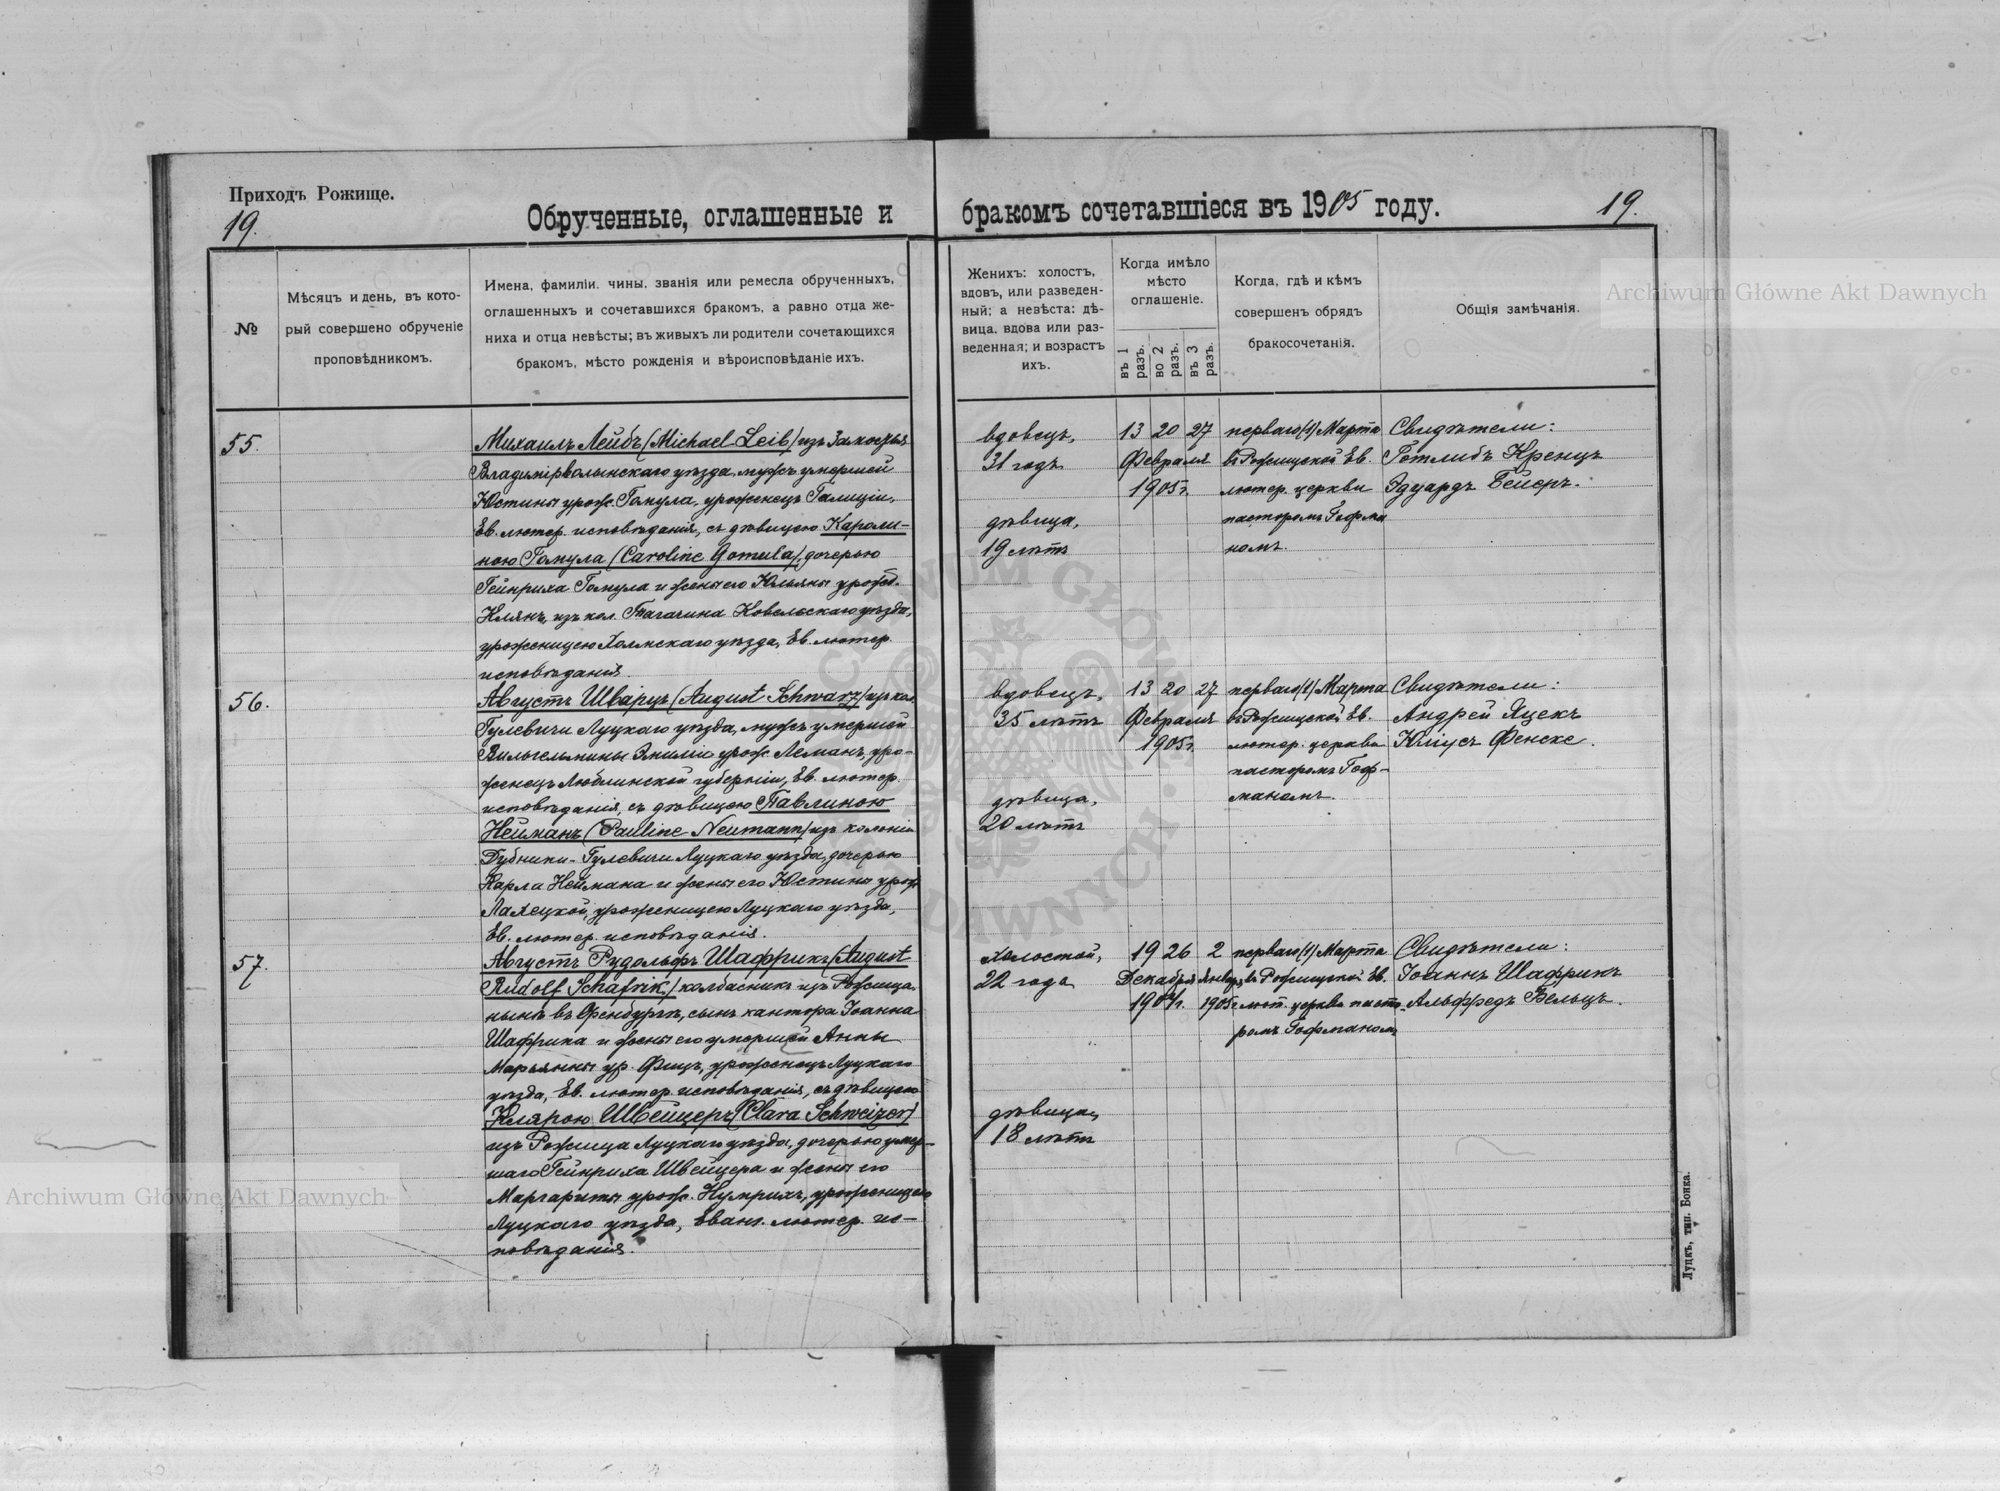 Приходъ Рожище.
19.
Обрученные, оглашенные и
бракомъ сочетавшіеся въ 1905 году.
19.
№
Мѣсяцъ и день, въ кото-
рый совершено обрученіе
проповѣдникомъ.
Имена, фамиліи. чины, званія или ремесла обрученныхъ,
оглашенныхъ и сочетавшихся бракомъ, а равно отца же-
ниха и отца невѣсты; въ живыхъ ли родители сочетающихся
бракомъ, мѣсто рожденія и вѣроисповѣданіе ихъ.
Женихъ: холостъ,
вдовъ, или разведен-
ный; а невѣста: дѣ-
вица. вдова или раз-
веденная; и возрастъ
ихъ.
Когда имѣло
мѣсто
оглашеніе.
въ 1 разъ.
во 2 разъ.
въ 3 разъ.
Когда, гдѣ и кѣмъ
совершенъ обрядъ
бракосочетанія.
Общія замѣчанія.
55.
Михаилъ Лейбъ (Michael Leib) изъ Замостья
Владимірволынскаго уѣзда, мужъ умершей
Юстины урож. Гомула, уроженецъ Галиціи,
Ев. лютер. исповѣданія, съ дѣвицею Кароли-
ною Гомула (Caroline Gomula), дочерью
Гейнриха Гомула и жены его Юльяны урожд.
Клянъ, изъ кол. Тагачина Ковельскаго уѣзда,
уроженицею Холмскаго уѣзда, Ев. лютер.
исповѣданія.
вдовецъ,
31 годъ
дѣвица,
19 лѣтъ
13 20 27
Февраля
1905 г.
перваго (1) Марта
въ Рожищской Ев.
лютер. церкви
пасторомъ Гофма
номъ.
Свидѣтели:
Готлибъ Кренцъ
Эдуардъ Бейеръ.
56.
Августъ Шварцъ (August Schwarz) изъ кол.
Гулевичи Луцкаго уѣзда, мужъ умершей
Вильгельмины Эмиліи урож. Леманъ, уро-
женецъ Люблинской губерніи, Ев. лютер.
исповѣданія, съ дѣвицею Павлиною
Нейманъ (Pauline Neumann) изъ колоніи
Дубники-Гулевичи Луцкаго уѣзда, дочерью
Карла Неймана и жены его Юстины урож.
уроженицею Луцкаго уѣзда,
Ев. лютер. исповѣданія.
вдовецъ,
35 лѣтъ
дѣвица,
20 лѣтъ
13 20 27
Февраля
1905 г.
перваго (1) Марта
въ Рожищской Ев.
лютер. церкви
пасторомъ Гоф-
маномъ.
Свидѣтели:
Андрей Яцекъ
Юліусъ Фенске.
57.
Августъ Рудольфъ Шафрикъ (August
Rudolf Schafrik) колбасникъ изъ Рожища
нынѣ въ Оренбургѣ, сынъ кантора Іоанна
Шафрика и жены его умершей Анны
Марьянны ур. Фицъ, уроженецъ Луцкаго
уѣзда, Ев. лютер. исповѣданія, съ дѣвицею
Клярою Швейцеръ (Clara Schweizer)
изъ Рожища Луцкаго уѣзда, дочерью умер-
шаго Гейнриха Швейцера и жены его
Маргариты урож. Нумрихъ, уроженицею
Луцкаго уѣзда, Еван. лютер. ис-
повѣданія.
холостой,
22 года
дѣвица,
18 лѣтъ
19 26 2
Декабря Января
1904 г. 1905 г.
перваго (1) Марта
въ Рожищской Ев.
лют. церкви пасто-
ромъ Гофманомъ
Свидѣтели:
Іоаннъ Шафрикъ
Альфредъ Бельцъ.
Луцкъ, тип. Бонка.
Archiwum Główne Akt Dawnych
Archiwum Główne Akt Dawnych